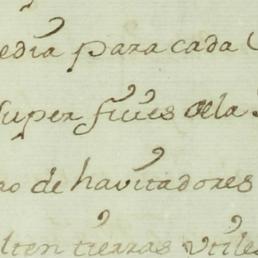 edia para cada
super ficies dela
ro de havitadores
lten tierras utiles